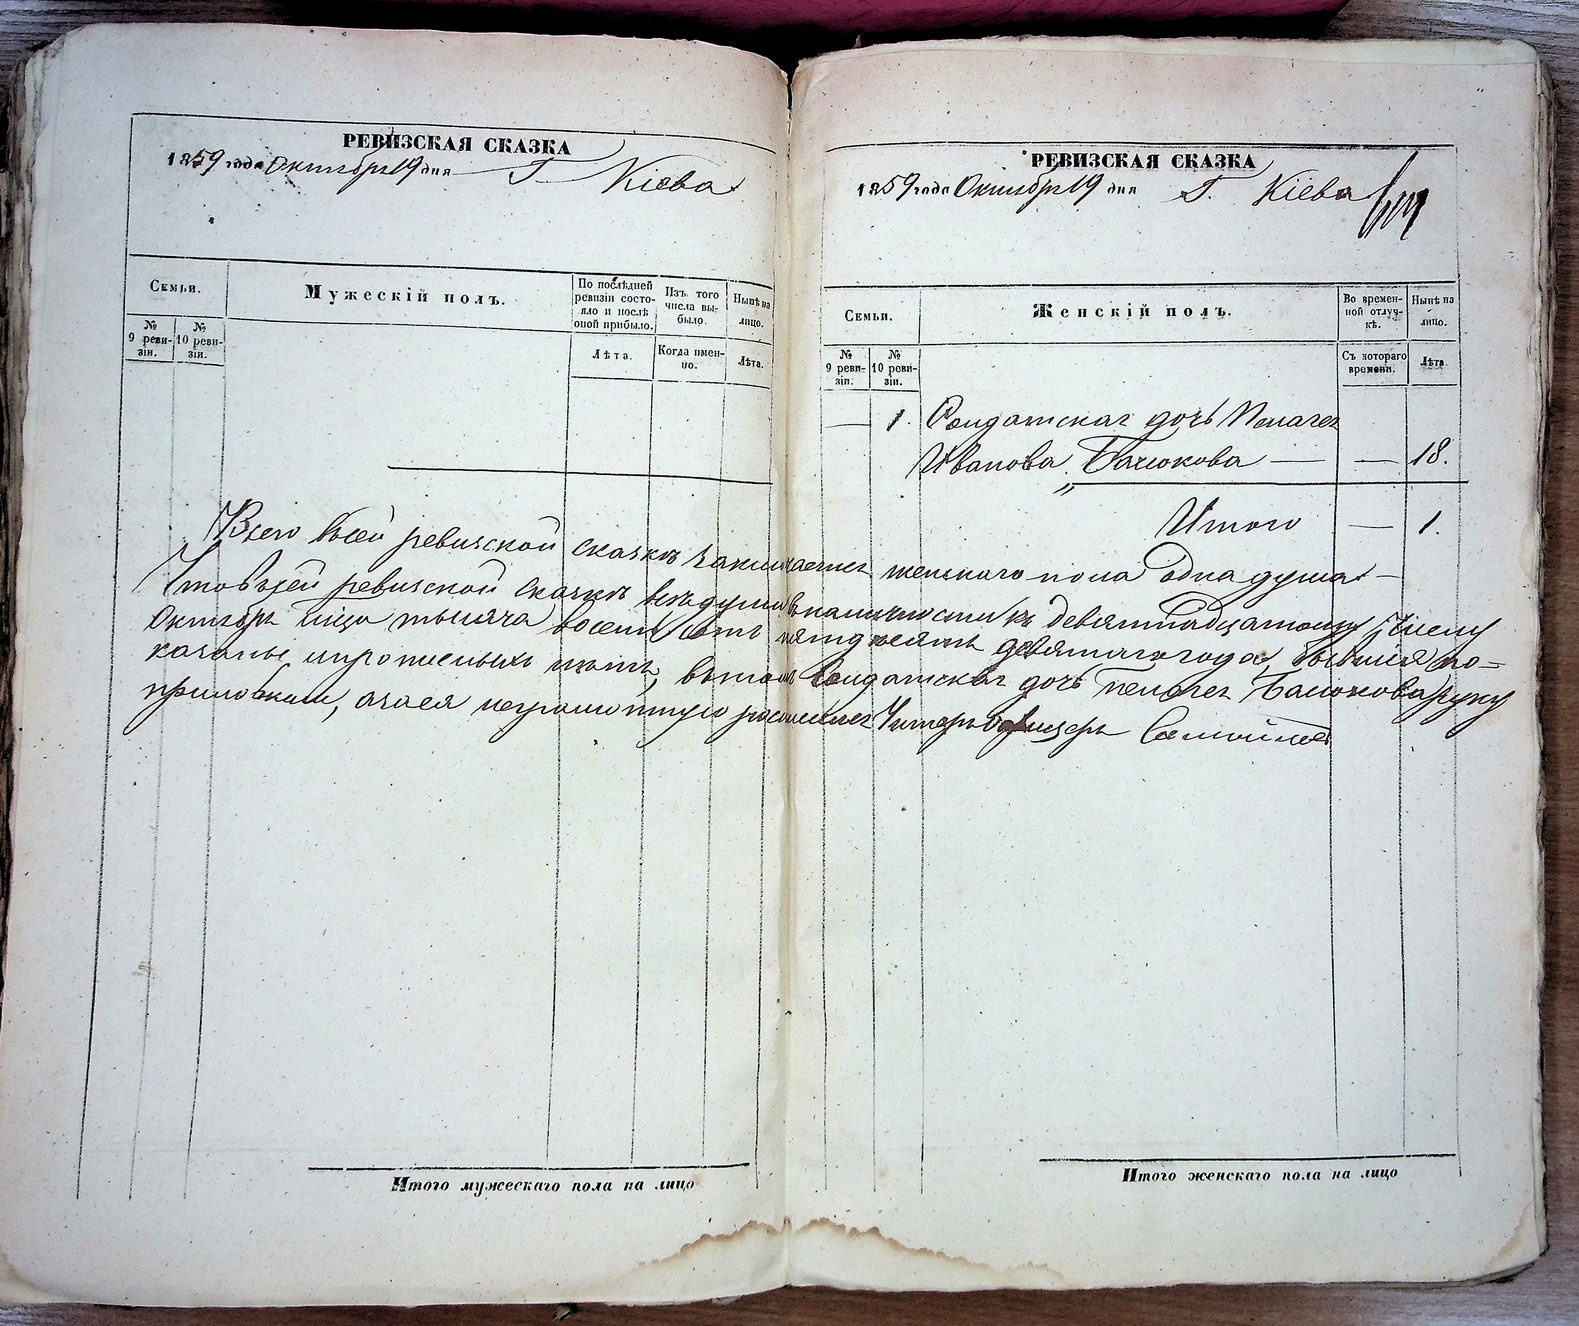 РЕВИЗСКАЯ СКАЗКА
1859 года Октября 19 дня Г. Кіева
Семьи.
Мужескій полъ.
По послѣдней ревизіи состояло и послѣ оной прибыло.
Изъ того числа выбыло.
Нынѣ на лицо.
№ 9 ревизіи.
№ 10 ревизіи.
Лѣта.
Когда именно.
Лѣта.
РЕВИЗСКАЯ СКАЗКА
1859 года Октября 19 дня Г. Кіева
Семьи.
Женскій полъ.
Во временной отлучкѣ.
Нынѣ на лицо.
№ 9 ревизіи.
№ 10 ревизіи.
Съ котораго времени.
Лѣта
— 1. Солдатская дочь Пелагея
Иванова Балюкова — — 18.
Итого — 1.
Всего в сей ревизской сказкѣ заключается женскаго пола одна душа —
Что въ сей ревизской сказкѣ всѣ души в наличности къ девятнадцатому числу
Октября тысяча восемь сотъ пятдесятъ девятаго года, бывшія по-
казаны и прописныхъ нѣтъ, въ томъ Солдатская дочь Пелагея Балюкова руку
приложила, а за ея неграмотную росписался Унтеръ Офицеръ
Итого мужескаго пола на лицо
Итого женскаго пола на лицо